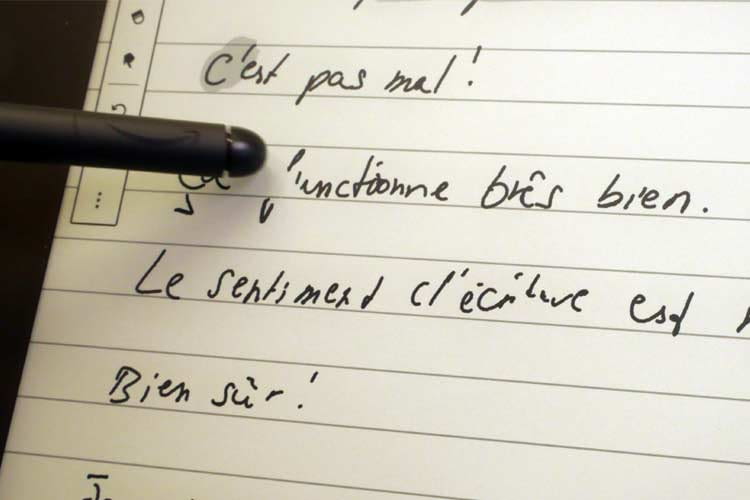 C'est pas mal !
Ça functionne très bien.
Le sentiment d'écriture est
Bien sûr !